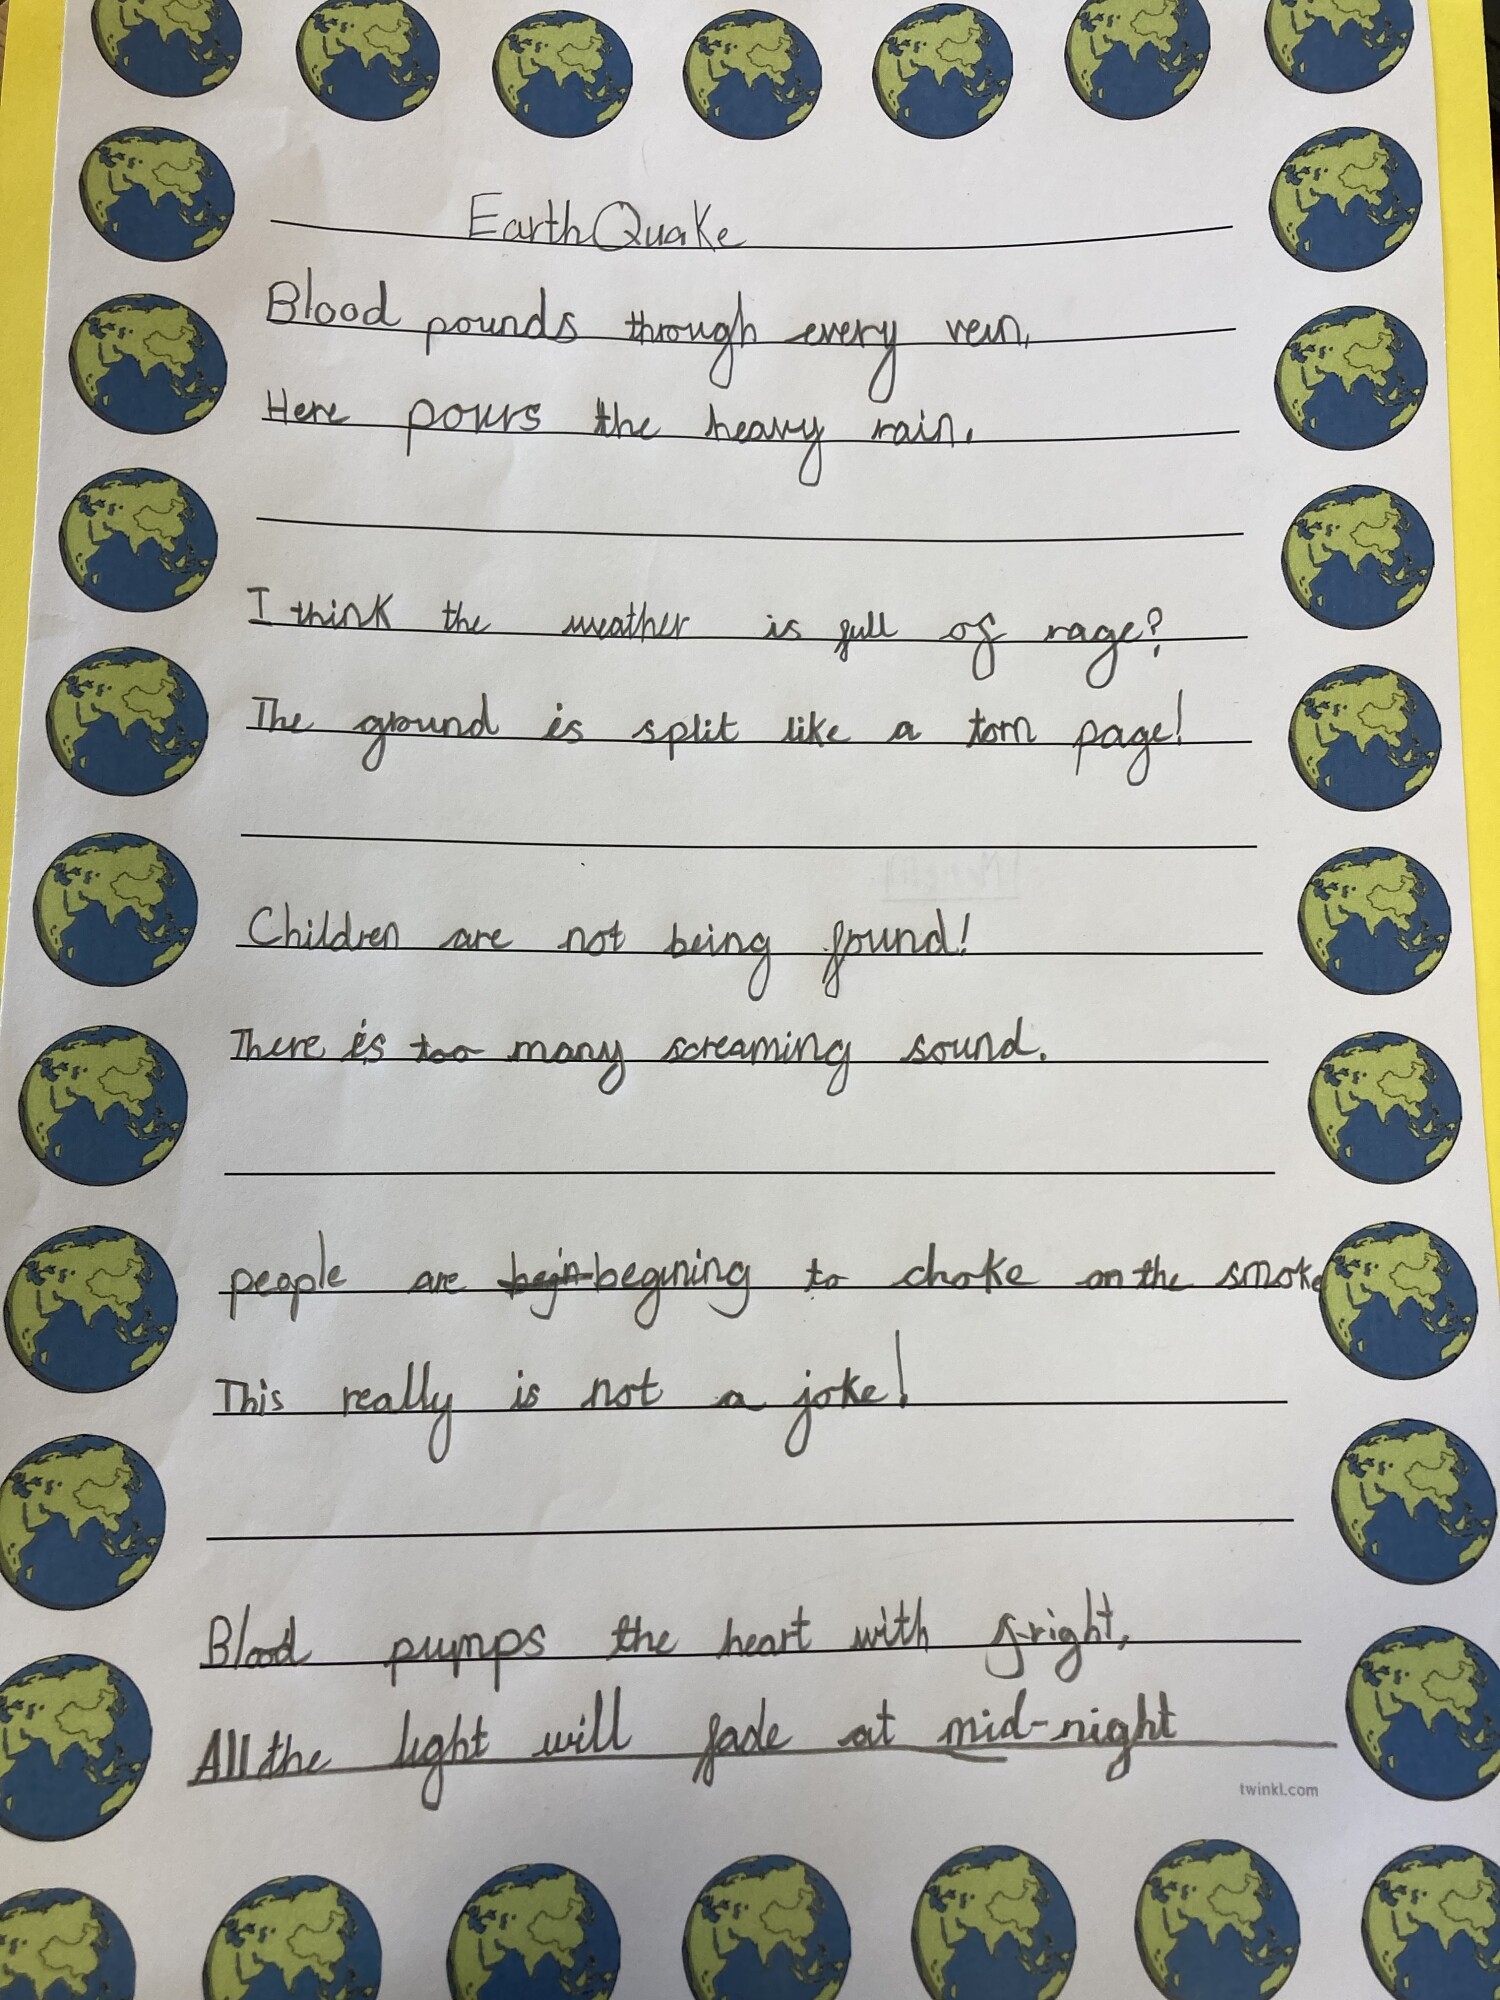 EarthQuake
Blood pounds through every vein,
Here pours the heavy rain.
I think the weather is full of rage?
The ground is split like a torn page!
Children are not being found!
There is too many screaming sound.
people are begin begining to choke on the smoke
This really is not a joke!
Blood pumps the heart with fright,
All the light will fade at mid-night
twinkl.com